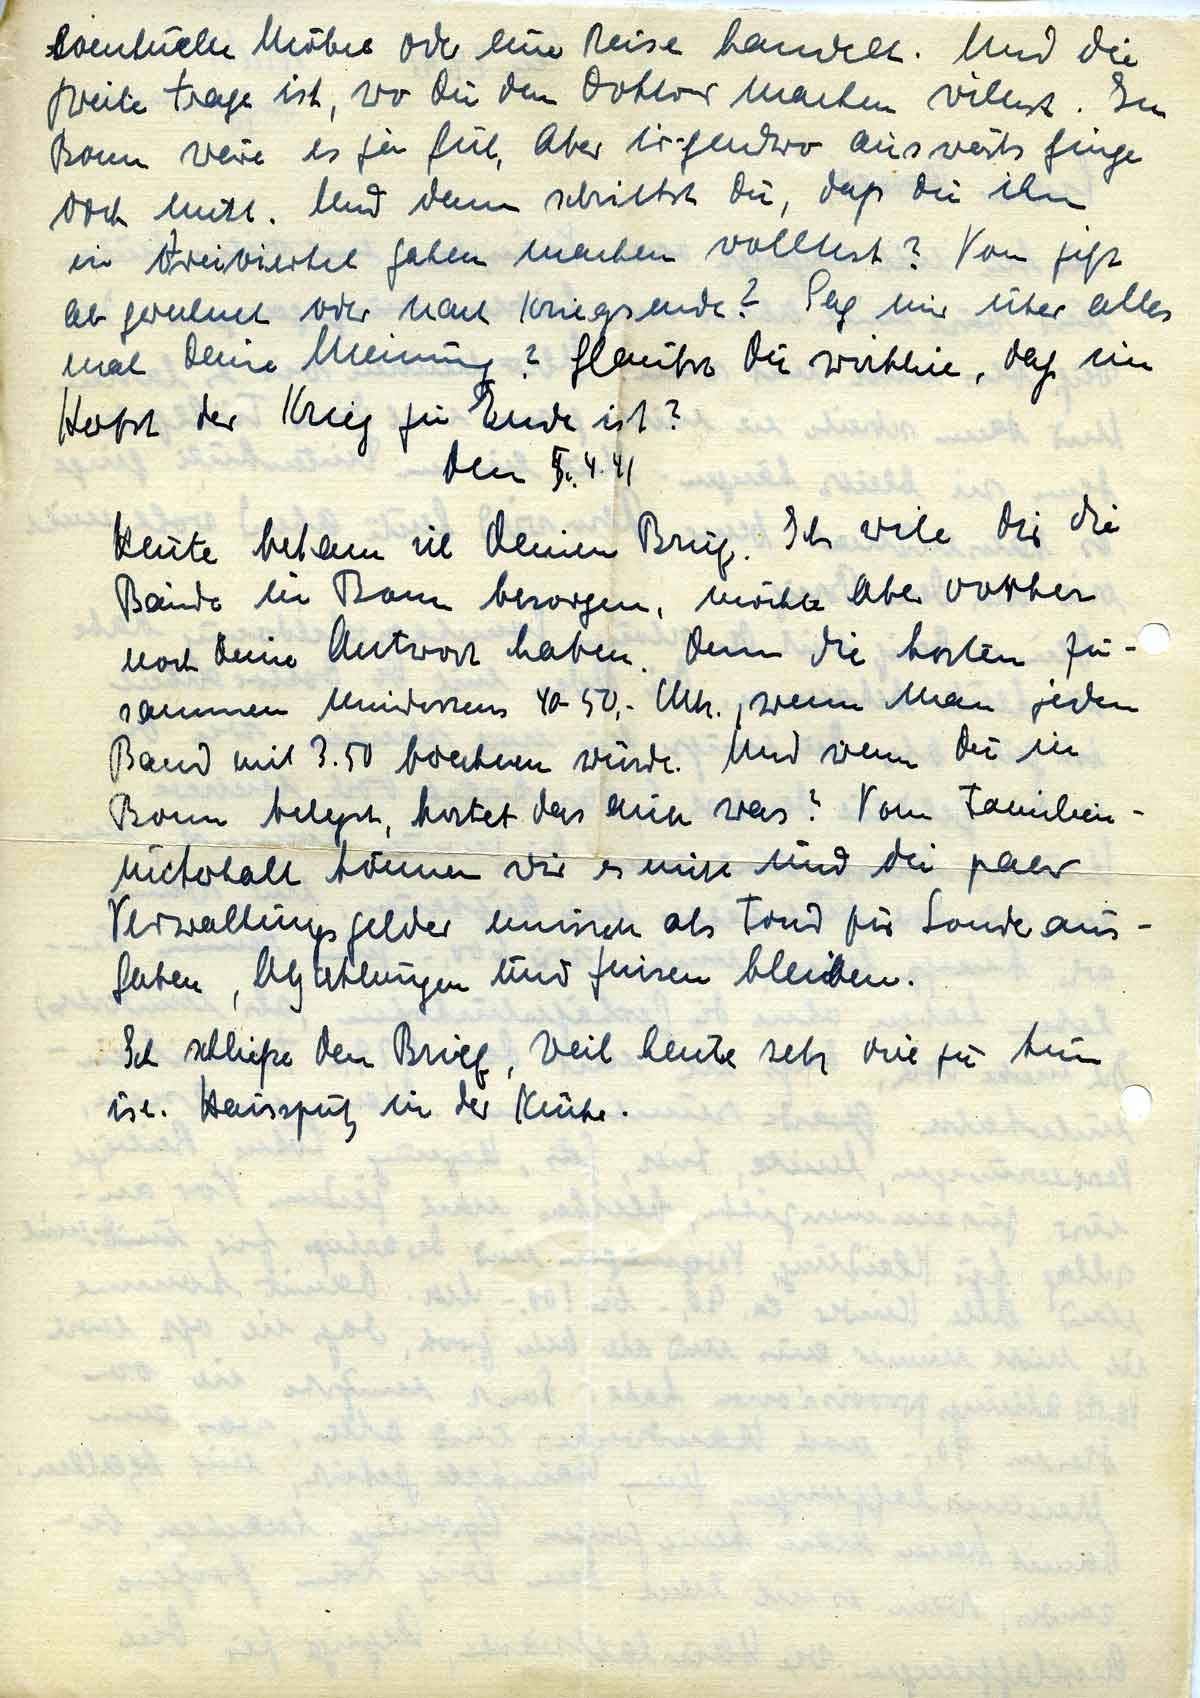 eventuelle Möbel oder eine Reise handelt. Und die
zweite Frage ist, wo Du den Doktor machen willst. In
Bonn wäre es ja gut, aber irgendwo auswärts ginge
doch nicht. Und dann schriebst Du, daß Du ihn
in dreiviertel Jahren machen wolltest? Von jetzt
ab gerechnet oder nach Kriegsende? Sag mir über alles
mal Deine Meinung? Glaubst Du wirklich, daß im
Herbst der Krieg zu Ende ist?
Den 4.41
Heute bekam ich Deinen Brief. Ich will Dir die
Bände in Bonn besorgen, möchte aber vorher
noch Deine Antwort haben. Denn die kosten zu-
sammen mindestens 40-50,- Mk., wenn man jeden
Band mit 3.50 berechnen würde. Und wenn Du in
Bonn belegst, kostet das auch was? Vom Familien-
unterhalt können wir es nicht und die paar
Verwaltungsgelder müssen als Fond für Sonderaus-
gaben, Abzahlungen und Zinsen bleiben.
Ich schließe den Brief, weil heute sehr viel zu tun
ist. Hausputz in der Küche.